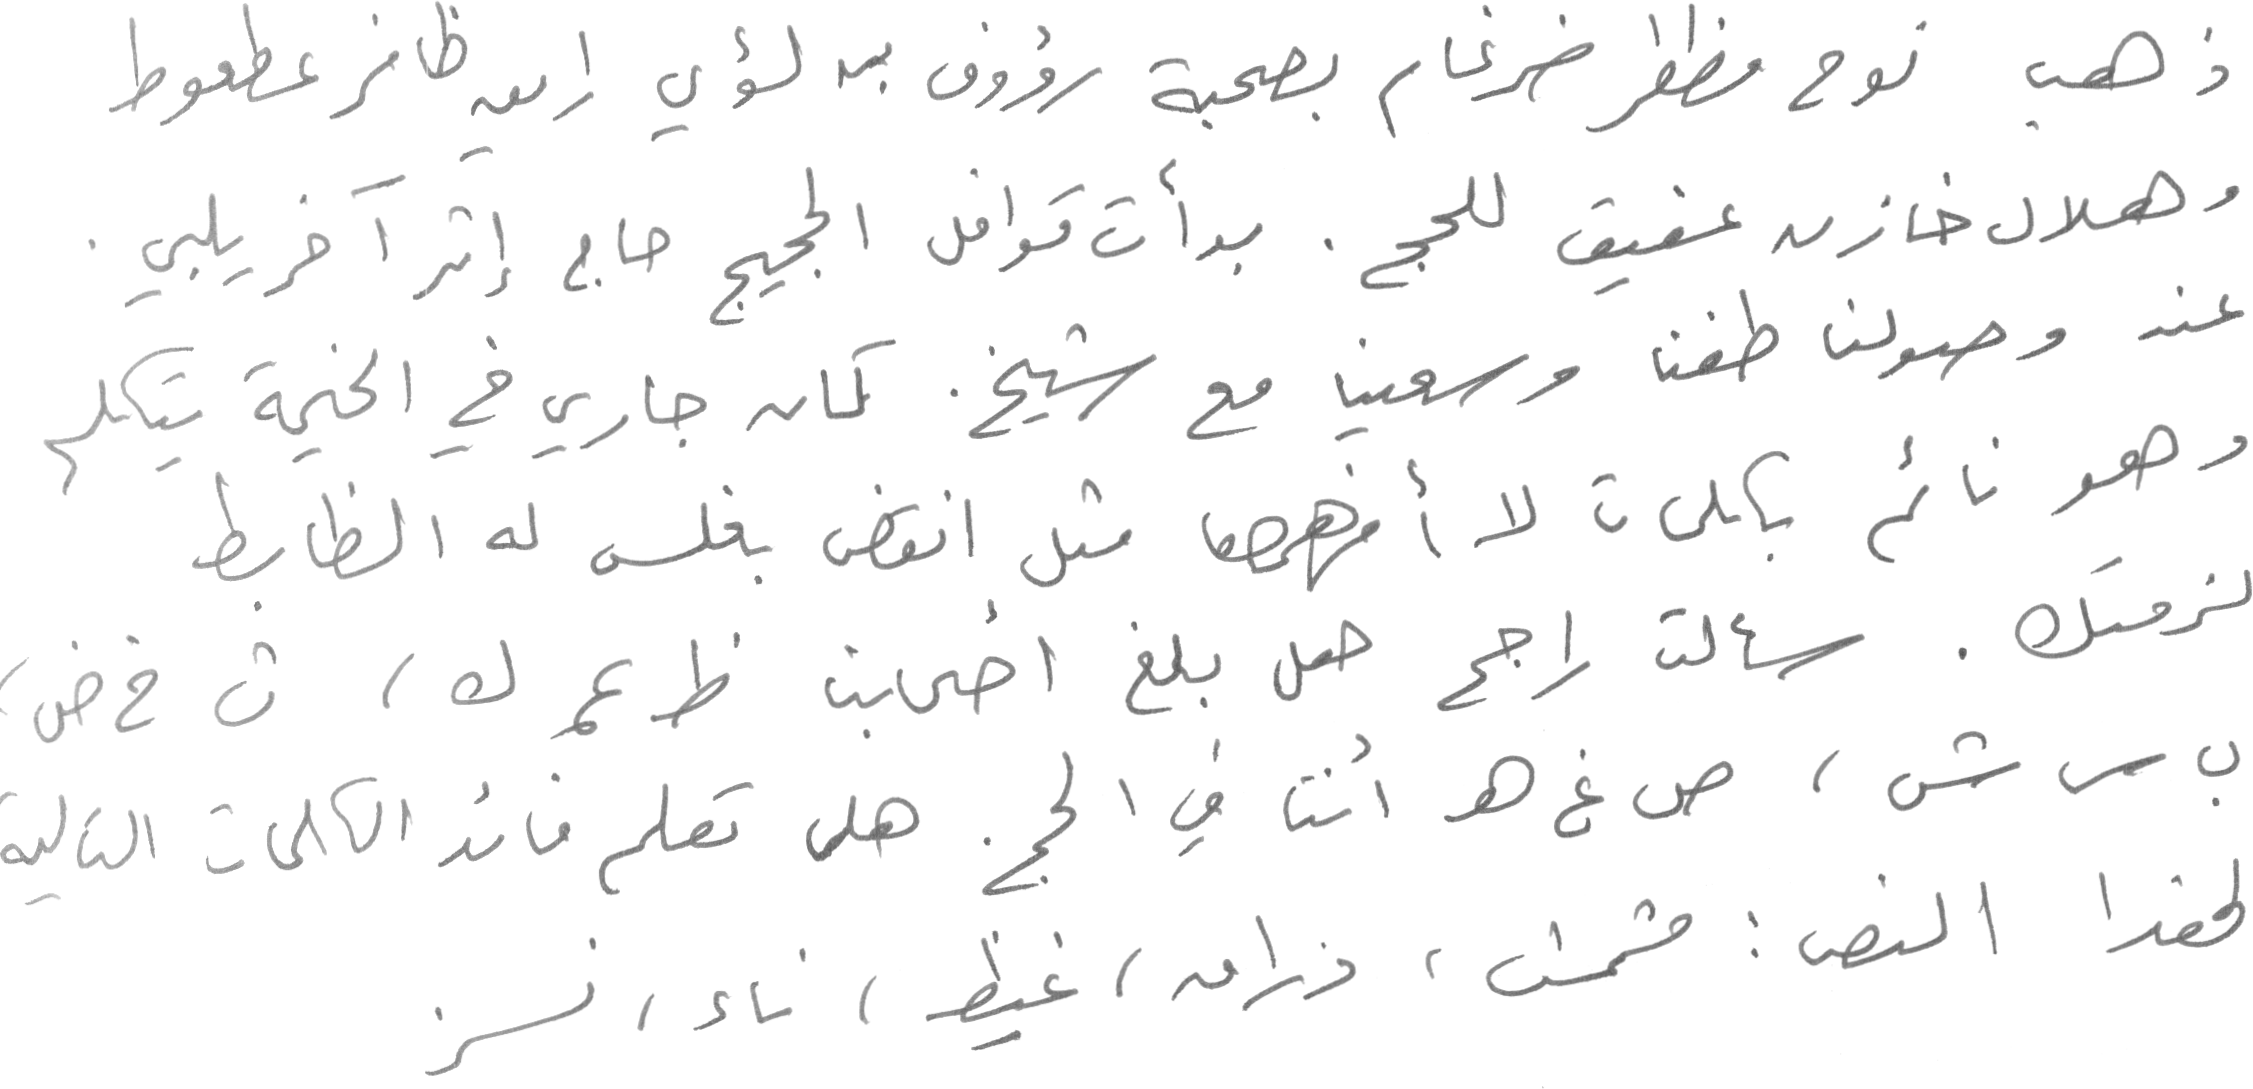 ذهب نوح مظفر ضرغام بصحبة رؤوف بن لؤي رامين ظافر عطعوط
وهلال خازن عفيق للحج . بدأت قوافل الحجيج حاج إثر آخر يلبي .
عند وصولنا طفنا وسعينا مع شيخ . كان جاري في الخيمة يتكلم
وهو نائم بكلمات لا أفهمها مثل انقض بغلس له الظابط
لزمتك . سألت راجح هل بلغ أضحابت ظ عم ك ، ث خ ض ،
ب س ش ، ص غ هو أئنتا في الحج . هل تعلم فائد الكلمات التالية
لهذا النص : مشمش ، ذرامن ، غيظ ، ناء ، نسز